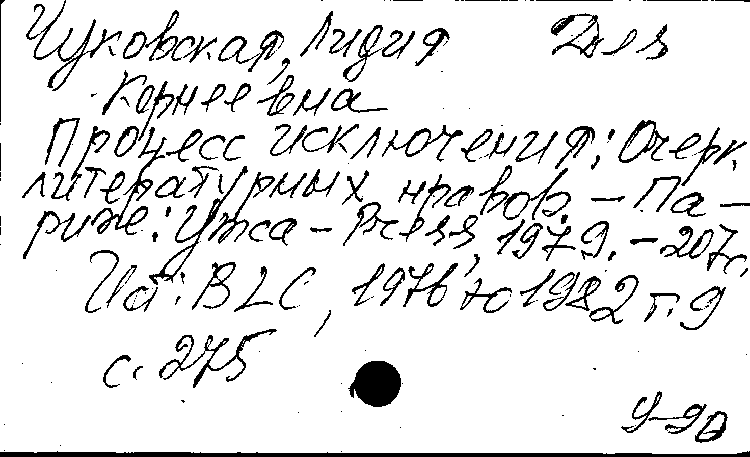 Чуковская, Лидия Des
Корнеевна
Процесс исключения: Очерк
литературных нравов. – Па–
риж: Ymca – Press, 1979. – 207с.
Ист: BLC, 1976 to 1982 т. 9
с. 275